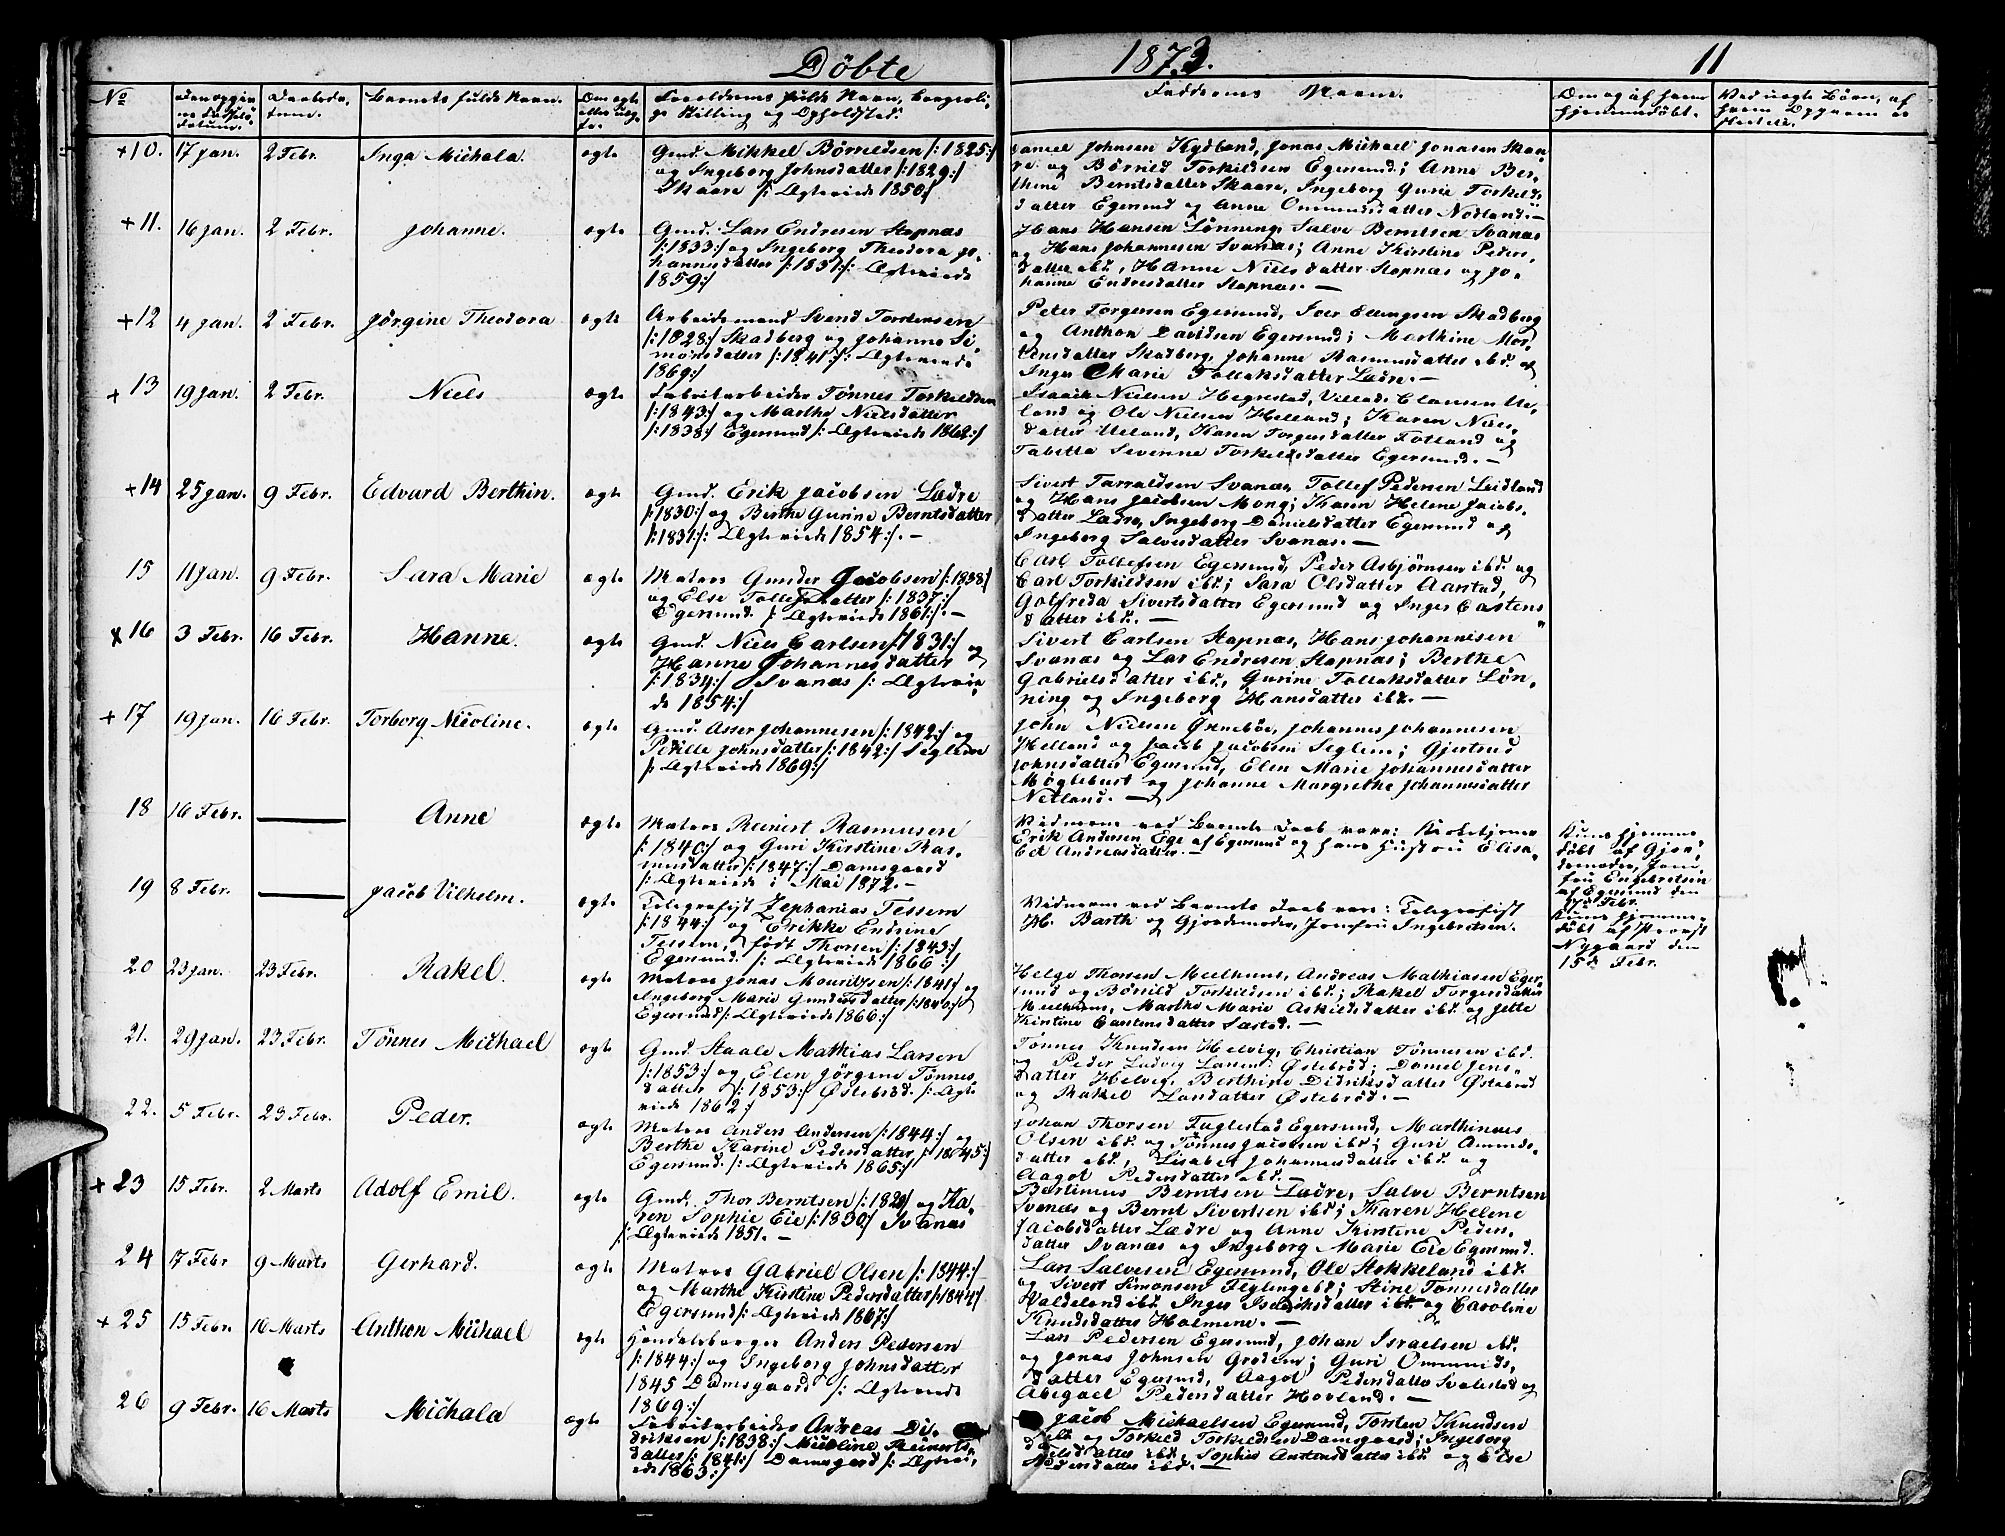 Döbte 1873. 11
No
Barnets fulde Navn.
Faddernes Navne.
+10. 17 Jan. 2 Febr. Inga Michala. ægte
Gmd. Mikkel Börrildsen /:1825:/
og Ingeborg Johnsdatter /:1829:/
Skaare /: Ægteviede 1850:/
Johnsen Hydland, Jonas Michael Jonasen Skaa-
re og Börrild Torkildsen Egersund; Anne Ber-
thine Berntsdatter Skaare, Ingeborg Gurie Torkilds
datter Egersund og Anne Ommundsdatter Nodland.—
+11. 16 Jan. 2 Febr. Johanne. ægte
Gmd. Lars Endresen Stapnæs
/:1833:/ og Ingeborg Theodora Jo-
hannesdatter /:1831:/: Ægteviede
1859:/
Hans Hansen Lönning, Salve Berntsen Svanæs
og Hans Johannesen Svanæs; Anne Kirstine Peders-
datter ibd., Hanne Nielsdatter Stapnæs og Jo-
hanne Endresdatter Stapnæs.—
+12 4 Jan. 2 Febr. Jörgine Theodora ægte
Arbeidsmand Svend Torstensen
/:1828:/ Skadberg og Johanne Si-
monsdatter /:1841:/: Ægteviede
1869:/
Peter Torgersen Egersund, Iver Ellingsen Skadberg
og Anthon Davidsen Egersund; Marthine Mor-
tensdatter Skadberg, Johanne Rasmusdatter ibd. og
Inger Marie Tollaksdatter Lædre.—
+13 19 Jan. 2 Febr. Niels ægte
Fabrikarbeider Tönnes Torkildsen
/:1843:/ og Marthe Nielsdatter
/:1838:/ Egersund /: Ægteviede 1862:/
Isaach Nielsen Hegrestad, Villads Clausen Ue-
land og Ole Nielsen Helland; Karen Niels-
datter Ueland, Karen Torgersdatter Fotland og
Tabitta Severine Torkildsdatter Egersund.—
+14 25 Jan. 9 Febr. Edvard Berthin. ægte
Gmd. Erik Jacobsen Lædre
/:1830:/ og Berthe Gurine Berntsdatter
/:1831:/: Ægteviede 1854:/.—
Sivert Tarraldsen Svanæs, Tollef Pedersen Leidland
og Hans Jacobsen Mong; Karen Helene Jacobs-
datter Lædre, Ingeborg Danielsdatter Egersund og
Ingeborg Salvesdatter Svanæs.—
15 11 Jan. 9 Febr. Sara Marie ægte
Matros Gunder Jacobsen /:1838:/
og Else Tollefsdatter /:1837:/
Egersund. /: Ægteviede 1861:/.—
Carl Tollefsen Egersund, Peder Asbjörnsen ibd. og
Carl Torkildsen ibd.; Sara Olsdatter Aarstad,
Gotfreda Sivertsdatter Egersund og Inger Carstens
datter ibd.—
x16 3 Febr. 16 Febr. Hanne. ægte
Gmd. Niels Carlsen /:1831:/ og
Hanne Johannesdatter
/:1834:/ Svanæs /: Ægtevie-
de 1854:/
Sivert Carlsen Stapnæs, Hans Johannesen
Svanæs og Lars Endresen Stapnæs; Berthe
Gabrielsdatter ibd., Gurine Tollaksdatter Lön-
ning og Ingeborg Hansdatter ibd.—
+17 19 Jan. 16 Febr. Torborg Nicoline. ægte
Gmd. Asser Johannesen /:1842:/ og
Pernille Johnsdatter /:1842:/ Seglem
/: Ægteviede 1869:/
John Nielsen Ørneböe, Johannes Johannesen
Helland og Jacob Jacobsen Seglem; Gjertrud
Johnsdatter Egersund, Elen Marie Johannesdatter
Mögletvedt og Johanne Margrethe Johannesdatter
Netland.—
18 16 Febr. — Anne ægte
Matros Reinert Rasmusen
/:1840:/ og Guri Kirstine Ras-
musdatter /:1847:/ Damsgaard
/: Ægteviede i Mai 1872.—
Vidnerne ved Barnets Daab vare: Kirketjener
Erik Andersen Ege af Egersund og hans Hustru Elisa-
bet Andreasdatter.—
Kuns hjemme-
döbt af Gjor-
demoder, Jom-
fru Engebretsen
af Egersund den
17de Febr.
19 8 Febr. — Jacob Vilhelm. ægte
Telegrafist Zephanias Tessem
/:1844:/ og Erikke Endrine
Tessem, födt Thorsen /:1843:/
Egersund. /: Ægteviede 1866:/
Vidnerne ved Barnets Daab vare: Telegrafist
H. Barth og Gjordemoder, Jomfru Ingebretsen.
Kuns hjemme-
döbt af Provst
Nygaard den
15de Febr.
20 23 Jan. 23 Febr. Rakel. ægte
Matros Jonas Mouritzsen /:1841:/ og
Ingeborg Marie Gundersdatter /:1840:/
Egersund /: Ægteviede 1866:/
Helge Thorsen Melhuus, Andreas Mathiasen Eger-
sund og Börrild Torkildsen ibd.; Rakel Torgersdatter
Melhuus, Marthe Marie Askildsdatter ibd. og Jette
Kirstine Carstensdatter Sæstad.—
21. 29 Jan. 23 Febr. Tönnes Michael ægte
Gmd. Staale Mathias Larsen
/:1853:/ og Elen Jörgene Tönnes
datter /:1853:/ Østebröd. /: Ægte-
viede 1862:/
Tönnes Knudsen Helvig, Christian Tönnesen ibd.
og Peder Ludvig Larsen Østebröd; Daniel Jens-
datter Helvig, Berthine Didriksdatter Østebröd
og Rakel Larsdatter Østebröd.—
22. 5 Febr. 23 Febr. Peder. ægte
Matros Anders Andersen /:1844:/ og
Berthe Karine Pedersdatter /:1845:/
Egersund. /: Ægteviede 1865:/
Johan Thorsen Fuglestad Egersund, Marthinius
Olsen ibd. og Tönnes Jacobsen ibd.; Guri Ommunds-
datter ibd., Lisabet Johannesdatter ibd. og
Aagot Pedersdatter ibd.—
+23 15 Febr. 2 Marts Adolf Emil. ægte
Gmd. Thor Berntsen /:1829:/ og Ka-
ren Sophie Eie /:1830:/ Svanæs
/: Ægteviede 1851.—
Bertinius Berntsen Lædre, Salve Berntsen
Svanæs og Bernt Sivertsen ibd.; Karen Helene
Jacobsdatter Lædre og Anne Kirstine Peders-
datter Svanæs og Ingeborg Marie Eie Egersund.
24 17 Febr 9 Marts Gerhard. ægte
Matros Gabriel Olsen /:1844:/
og Marthe Kirstine Pedersdatter /:1844:/
Egersund /: Ægteviede 1867:/
Lars Salvesen Egersund, Ole Stokkeland ibd.
og Sivert Simonsen Flytingebö; Stine Tönnesdatter
Waldeland ibd. Inger Isaksdatter ibd. og Caroline
Knudsdatter Holmene.—
+25 15 Febr. 16 Marts Anthon Michael ægte
Handelsborger Anders Pedersen
/:1844:/ og Ingeborg Johnsdatter
1845 Damsgaard /: Ægteviede
1869:/
Lars Pedersen Egersund, Johan Israelsen ibd.
og Jonas Johnsen Grödem; Guri Ommunds-
datter Egersund, Aagot Pedersdatter Svalestad og
Abigael Pedersdatter Hovland.—
26 9 Febr. 16 Marts Michala ægte
Fabrikarbeider Andreas Di-
driksen /:1838:/ Nicoline Reinerts-
datter /:1841:/ Damsgard /: Ægtevi-
ede 1863:/
Jacob Michaelsen Egersund, Torsten Knudsen
og Torkild Torkildsen Damsgaard; Ingeborg
datter ibd., Sophie Austensdatter ibd. og Else
Pedersdatter ibd.—